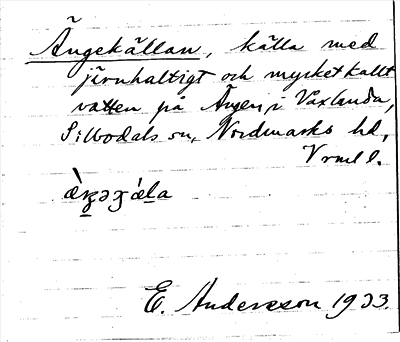 Ängekällan, källa med
järnhaltigt och mycket kallt
vatten på Ängen, i Vaxlunda,
Silbodals sn, Nordmarks hd,
Vrml l.
E. Andersson 1933.